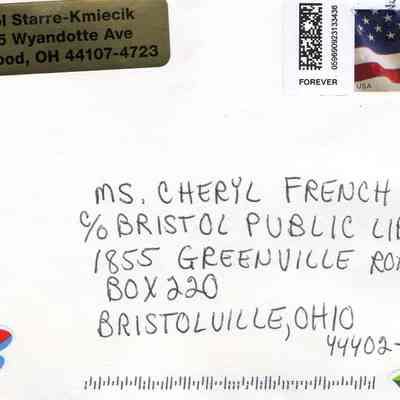 ol Starre-Kmiecik
5 Wyandotte Ave
ood, OH 44107-4723
0596909823133436
FOREVER
USA
MS. CHERYL FRENCH
C/O BRISTOL PUBLIC LIB
1855 GREENVILLE ROA
BOX 220
BRISTOLVILLE, OHIO
44402-